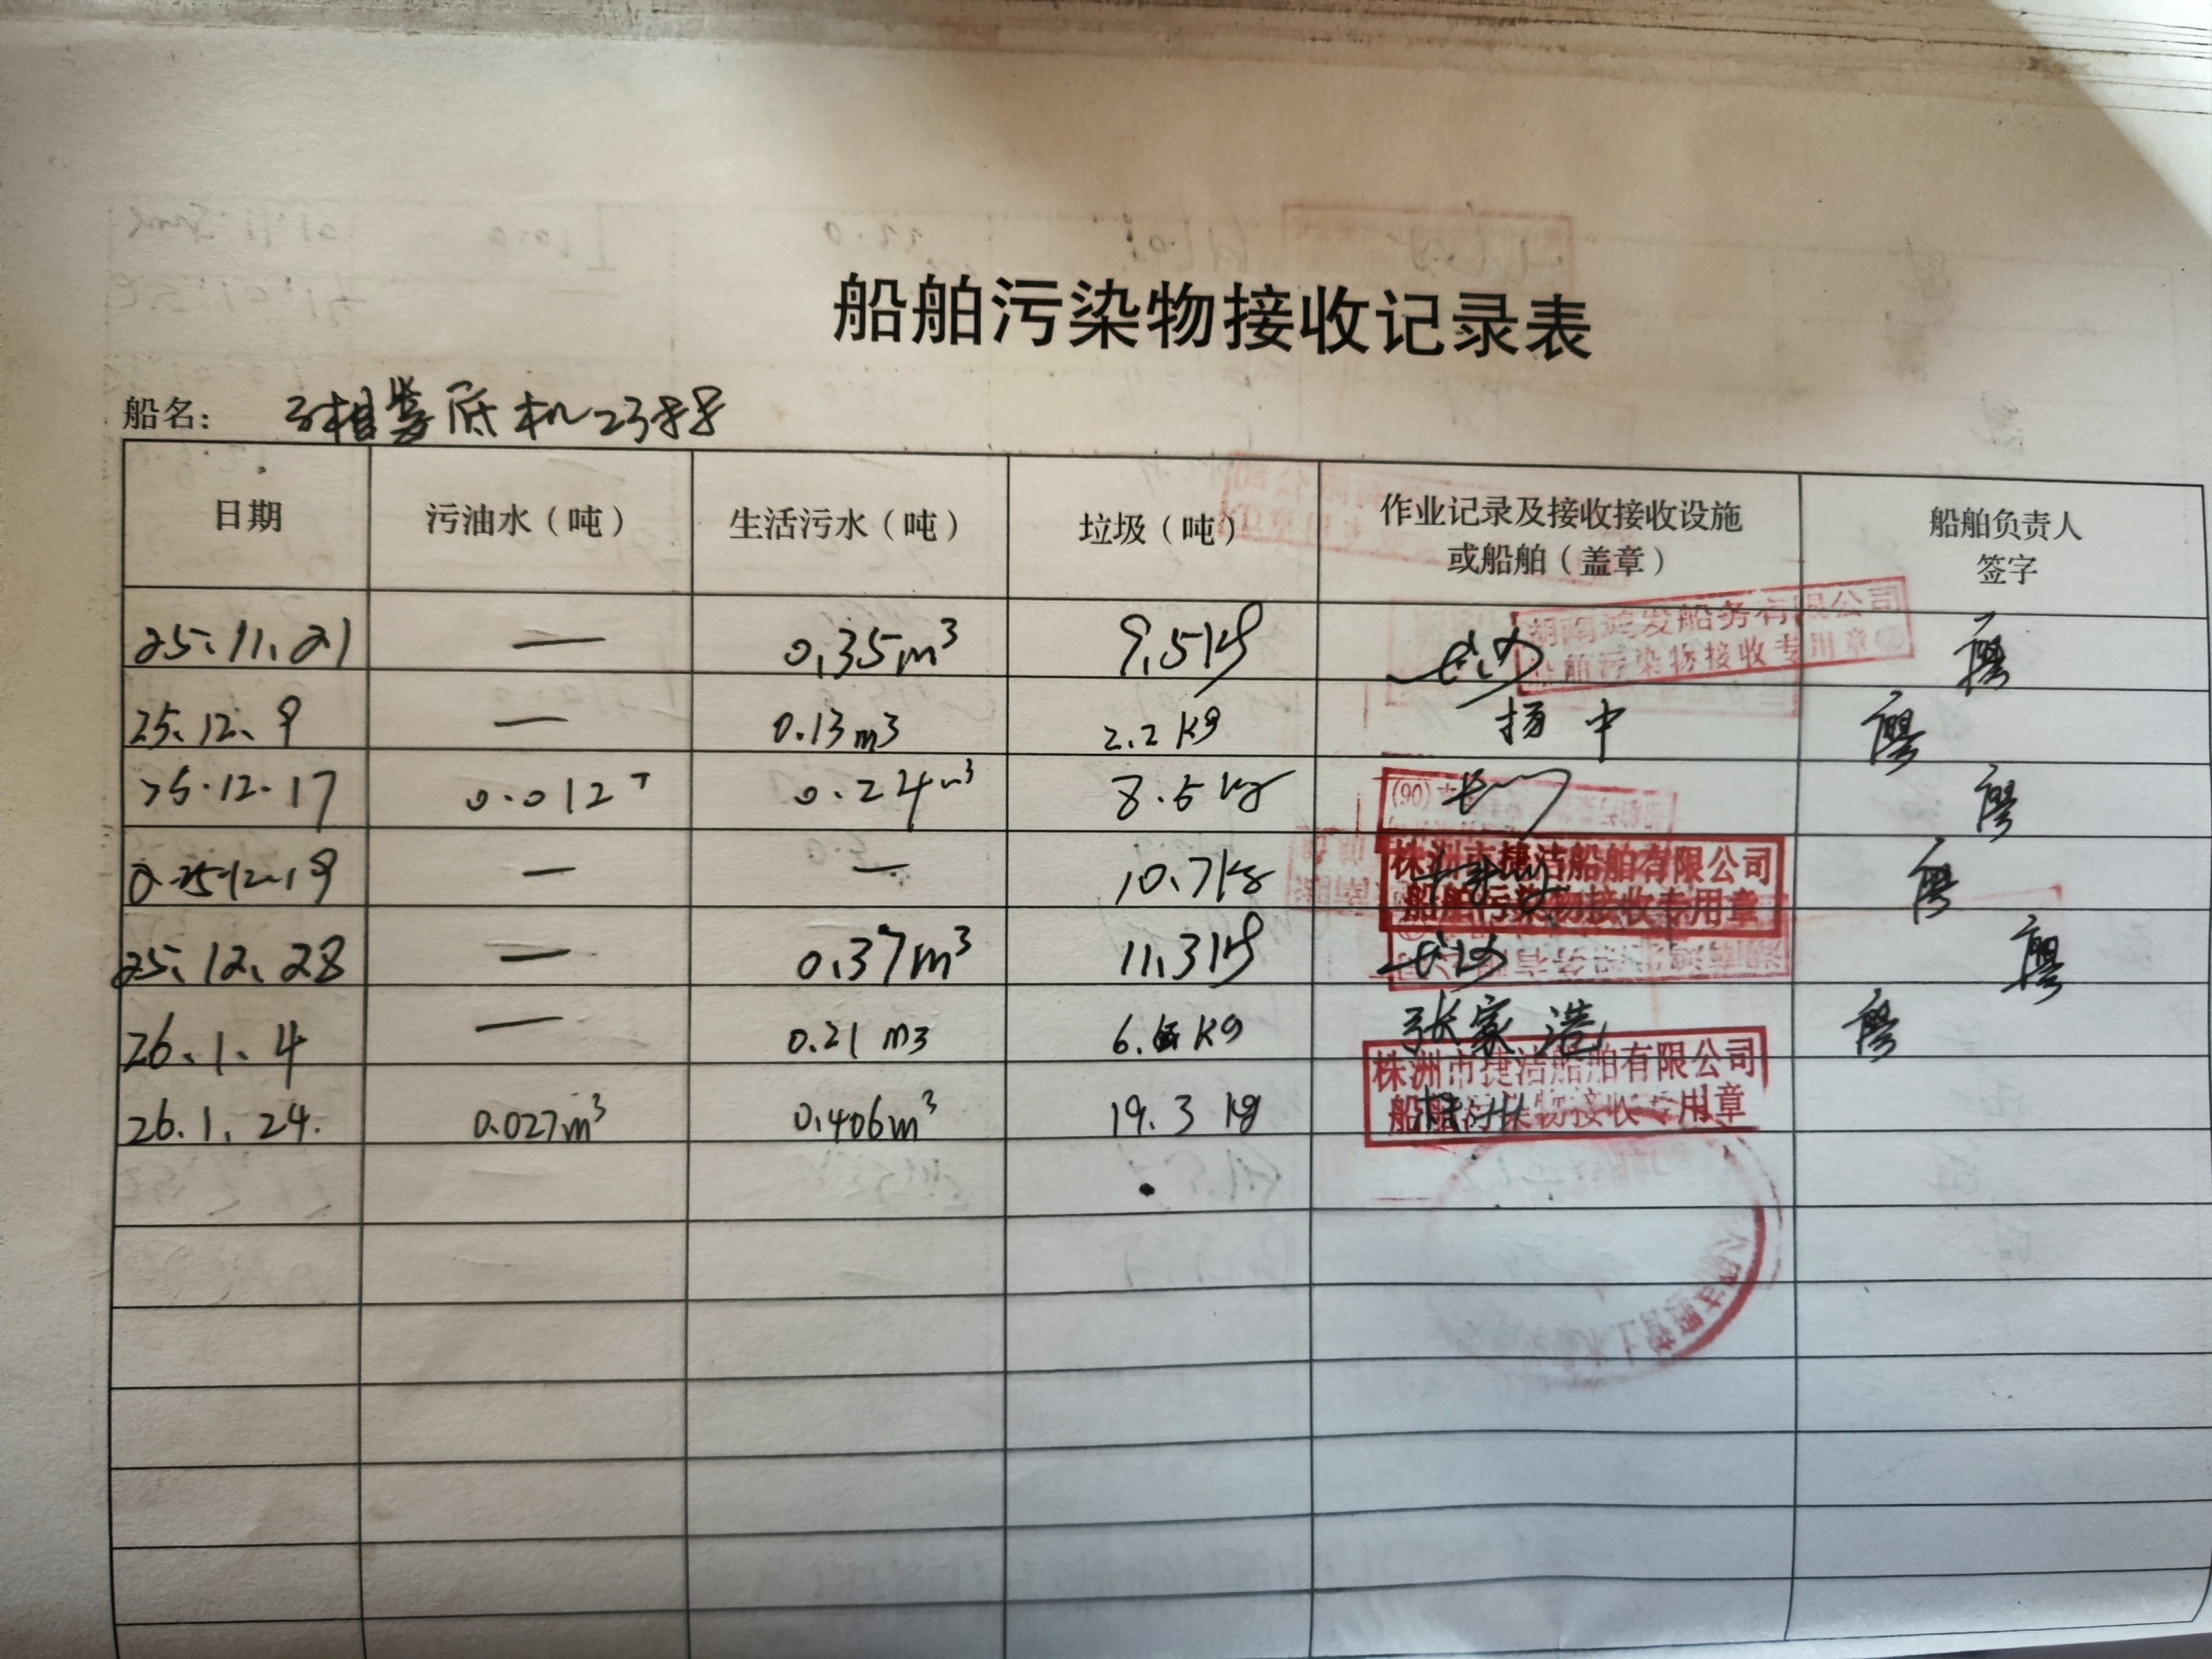 船舶污染物接收记录表
船名： 机2388
日期 污油水（吨） 生活污水（吨） 垃圾（吨） 作业记录及接收接收设施或船舶（盖章） 船舶负责人签字
25.11.21 — 0.35m³ 9.5kg 湖南鸿发船务有限公司 船舶污染物接收专用章 廖
25.12.9 — 0.13m3 2.2kg 扬中 廖
25.12.17 0.012T 0.24m³ 8.5kg 廖
25.12.19 — — 10.7kg 株洲市捷洁船舶有限公司 船舶污染物接收专用章 廖
25.12.28 — 0.37m³ 11.3kg 廖
26.1.4 — 0.21m3 6. kg 张家港 廖
26.1.24. 0.027m³ 0.406m³ 19.3kg 株洲市捷洁船舶有限公司 船舶污染物接收专用章